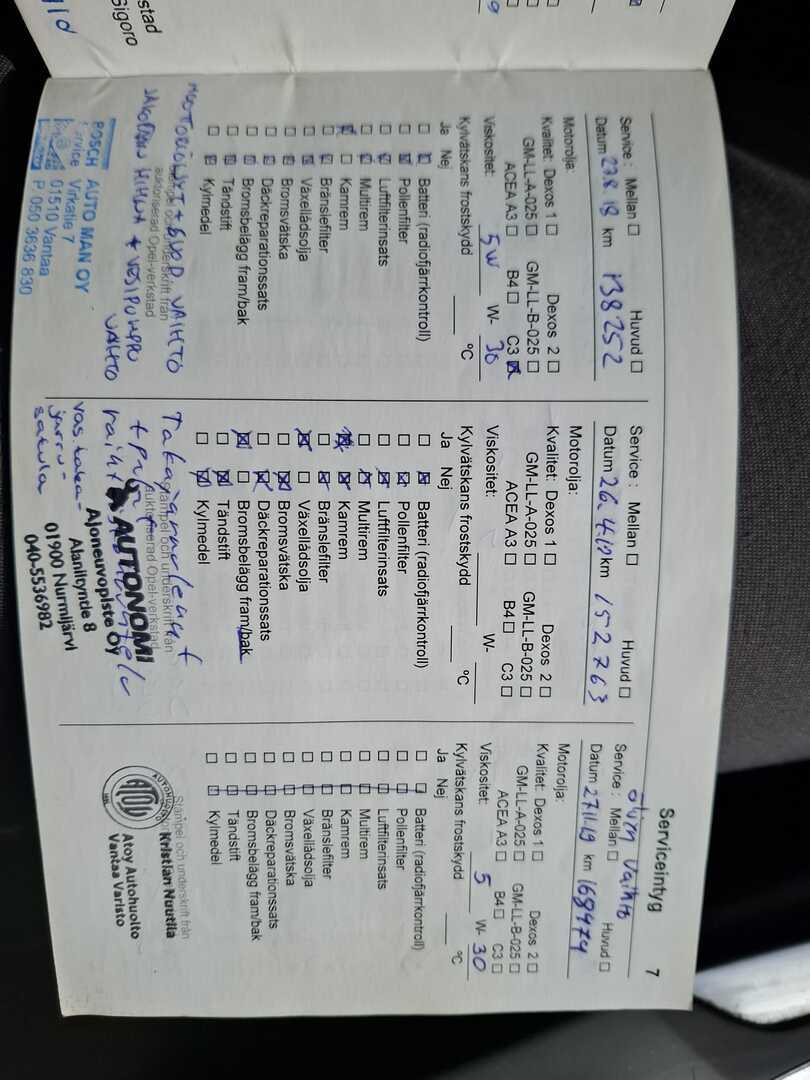 stad
Sigoro
Serviceintyg
7
Service : Mellan ☐ Huvud ☐
Datum 27.8.18 km 138252
Motorolja:
Kvalitet: Dexos 1 ☐ Dexos 2 ☐
GM-LL-A-025 ☐ GM-LL-B-025 ☐
ACEA A3 ☐ B4 ☐ C3 ☒
Viskositet: 5W W- 30
Kylvätskans frostskydd °C
Ja Nej
Batteri (radiofjärrkontroll)
Pollenfilter
Luftfilterinsats
Multirem
Kamrem
Bränslefilter
Växellådsolja
Bromsvätska
Däckreparationssats
Bromsbelägg fram/bak
Tändstift
Kylmedel
MOOTTORIÖLJYT + SUOD. VAIHTO
JAKOPÄÄN HIHNA + VESIPUMPPU
VAIHTO
BOSCH AUTO MAN OY
Service Virkatie 7
01510 Vantaa
P 050 3636 830
Service : Mellan ☐ Huvud ☐
Datum 26.4.19 km 152763
Motorolja:
Kvalitet: Dexos 1 ☐ Dexos 2 ☐
GM-LL-A-025 ☐ GM-LL-B-025 ☐
ACEA A3 ☐ B4 ☐ C3 ☐
Viskositet: W-
Kylvätskans frostskydd °C
Ja Nej
Batteri (radiofjärrkontroll)
Pollenfilter
Luftfilterinsats
Multirem
Kamrem
Bränslefilter
Växellådsolja
Bromsvätska
Däckreparationssats
Bromsbelägg fram/bak
Tändstift
Kylmedel
Stämpel och underskrift från
auktoriserad Opel-verkstad
Takajarrulevyt
vas. taka-
jarru-
satula
AUTONOMI
Ajoneuvopiste Oy
Alanitynde 8
01900 Nurmijärvi
040-5536982
Öljyn vaihto
Service : Mellan ☐ Huvud ☐
Datum 27.11.19 km 168974
Motorolja:
Kvalitet: Dexos 1 ☐ Dexos 2 ☐
GM-LL-A-025 ☐ GM-LL-B-025 ☐
ACEA A3 ☐ B4 ☐ C3 ☐
Viskositet: 5 W- 30
Kylvätskans frostskydd °C
Ja Nej
Batteri (radiofjärrkontroll)
Pollenfilter
Luftfilterinsats
Multirem
Kamrem
Bränslefilter
Växellådsolja
Bromsvätska
Däckreparationssats
Bromsbelägg fram/bak
Tändstift
Kylmedel
Stämpel och underskrift från
Kristian Nuutila
ATOY
Atoy Autohuolto
Vantaa Varisto